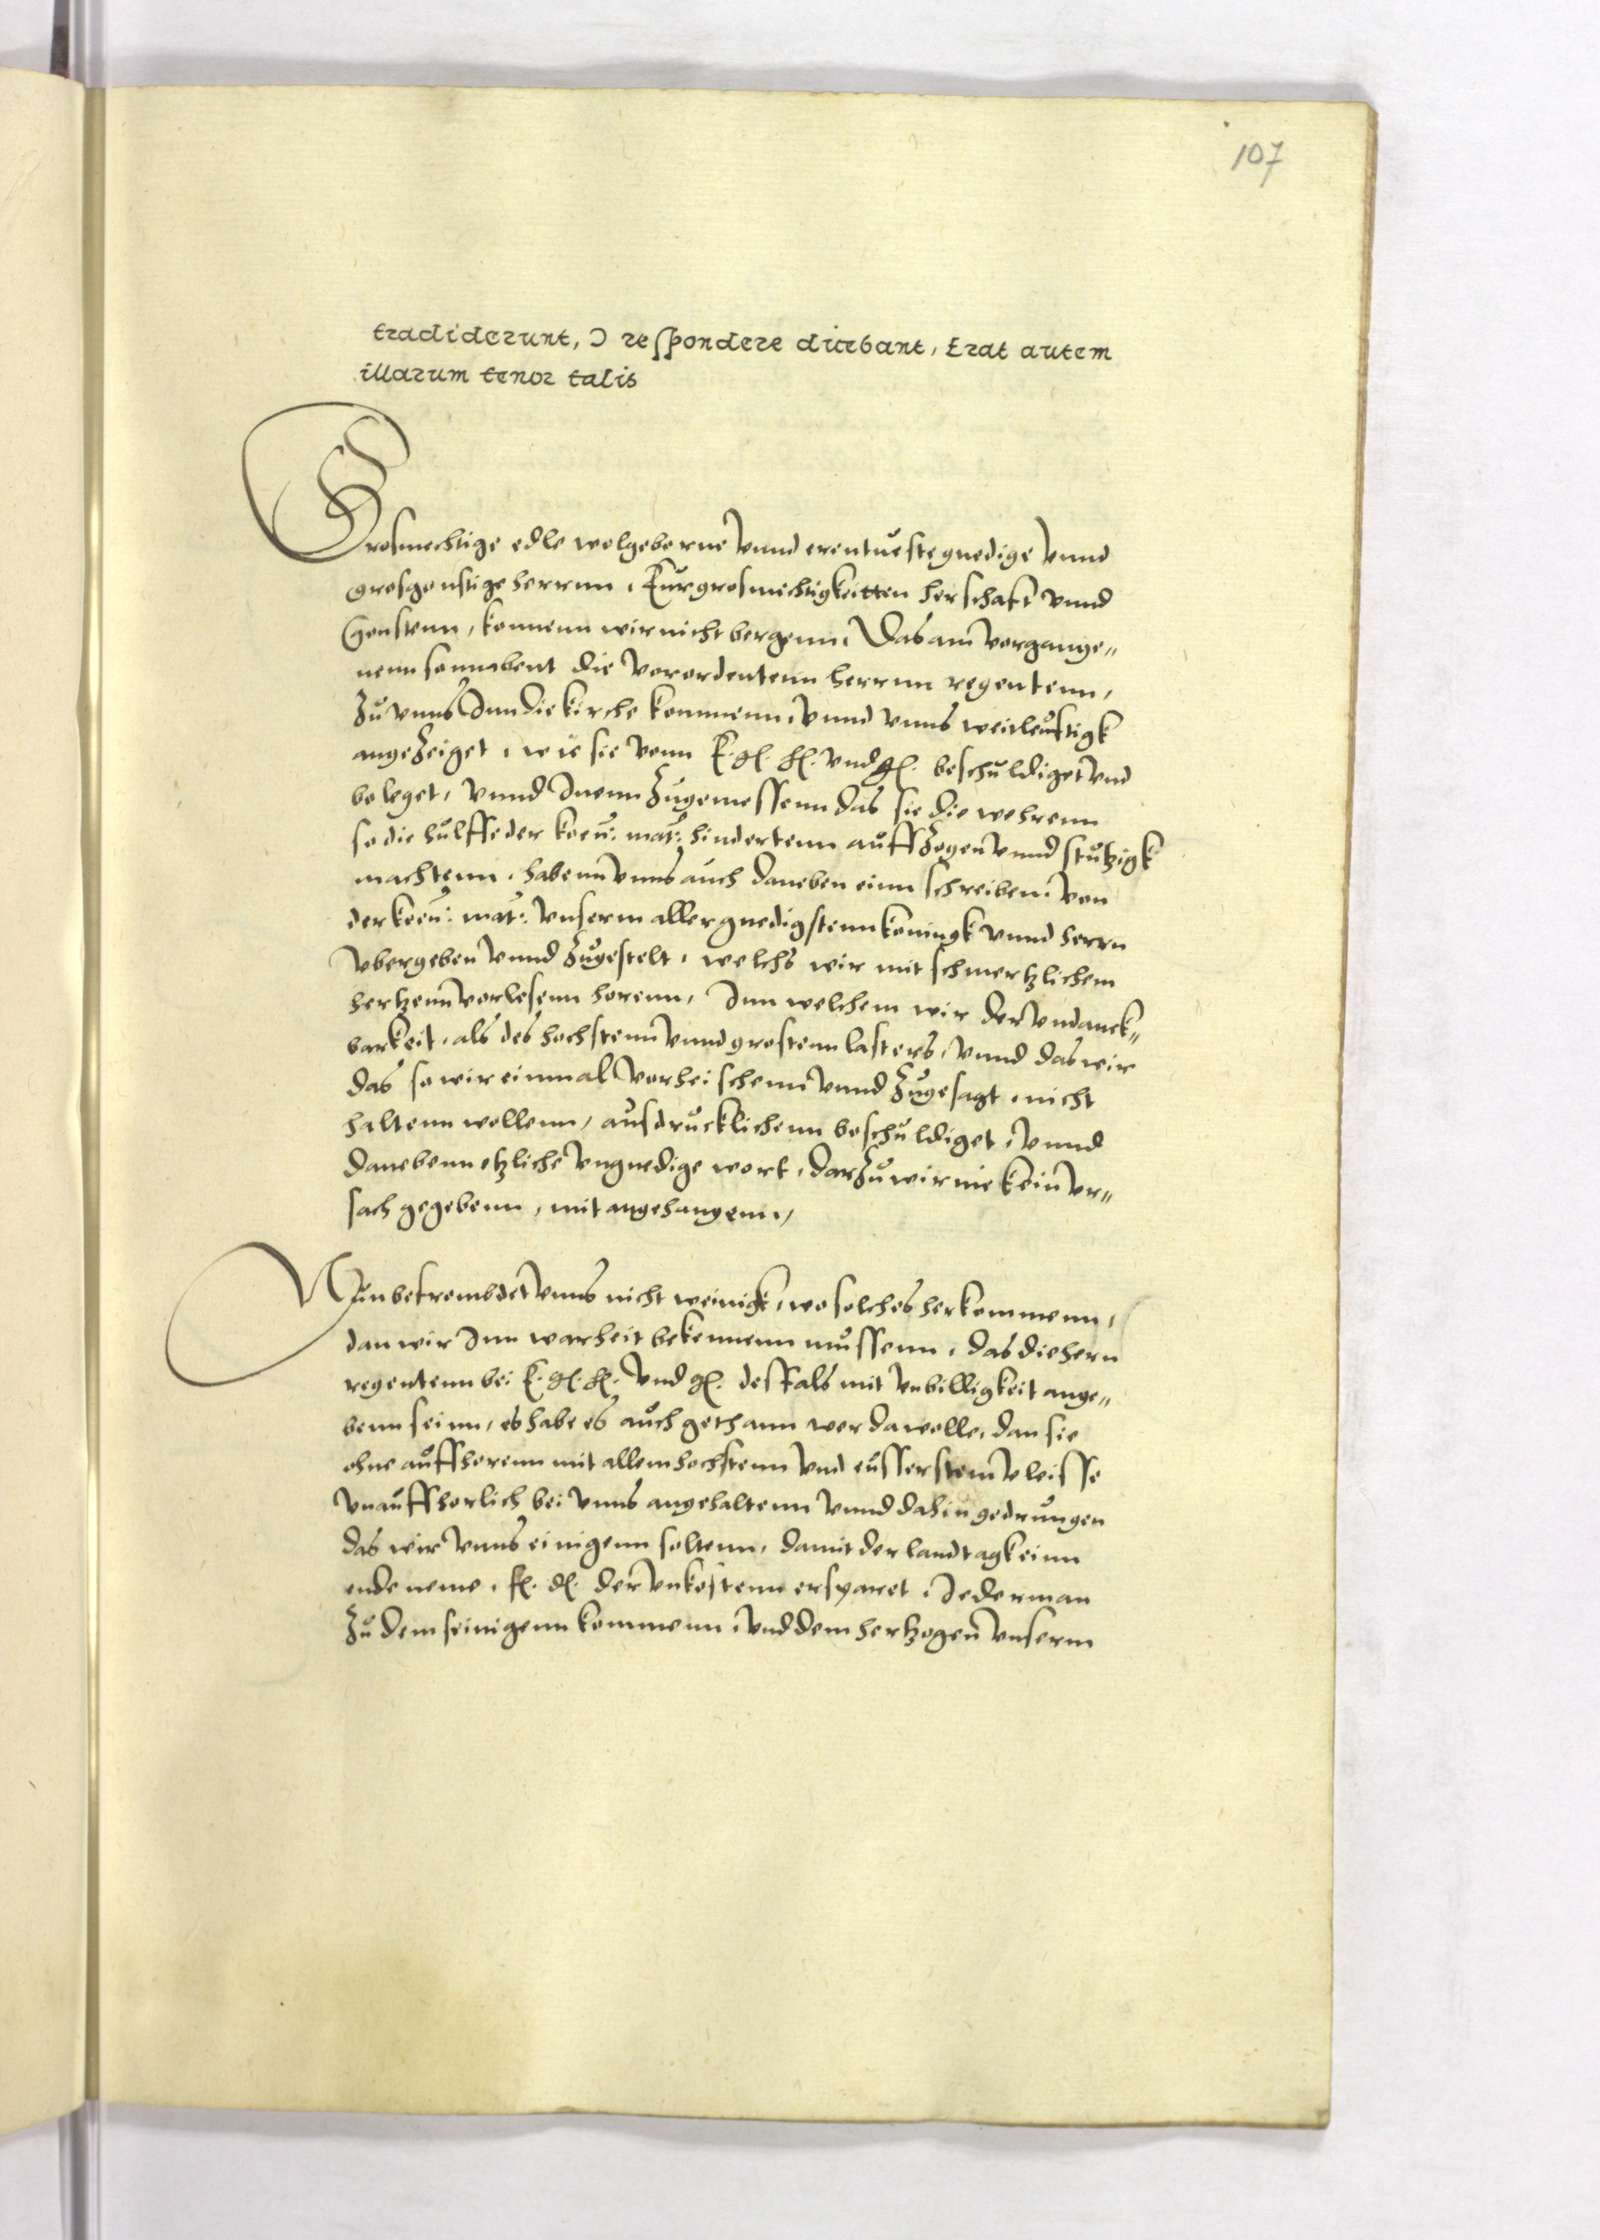 107
tradiderunt, Ɔ respondere dicebant, Erat autem
illarum tenor talis
Grosmechtige edle wolgeborne vnnd erentueste gnedige vnnd
grosgonstige herrnn, Eur grosmechtigkeitten herschaft vnnd
Gonstenn, konnenn wir nicht bergenn, Das am vergange„
nenn sonnabent die verordentenn herrnn regentenn,
zu vnns Inn die kirche kommenn, vnnd vnns weitleuftigk
angezeiget, wie sie vonn E. gl. hl. vnd gl. beschuldiget vnd
beleget, vnnd Inenn zugemessenn das sie die wehrenn
so die hulffe der koen: mat: hindertenn auffzogen vnnd stutzigk
machtenn, habenn vnns auch daneben einn schreibenn von
der koen: mat: vnserm allergnedigstenn koningk vnnd herrn
vbergeben vnnd zugestelt, welchs wir mit schmertzlichem
hertzenn vorlesenn horenn, Inn welchem wir der vndanck„
barkeit, als des hochstenn vnnd grostenn lasters, vnnd das wir
das so wir einmal vorheischenn vnnd zugesagt, nicht
haltenn wollenn, ausdrucklichenn beschuldiget, vnnd
danebenn etzliche vngnedige wort, darzu wir nie kein vr„
sach gegebenn, mit angehangenn,
Nun befrembdet vnns nicht weinigk, wo solches herkommenn,
dan wir Inn warheit bekennenn mussenn, das die hern
regentenn bei E. gl. hl. vnd gl. desfals mit vnbilligkeit ange„
benn seinn, es habe es auch gethann wer da wolle, dan sie
ohne auffhorenn mit allem hochstenn vnd eusserstenn vleisse
vnauffhorlich bei vnns angehaltenn vnnd dahin gedrungen
das wir vnns einigenn soltenn, damit der landtagk einn
ende neme, fl. dl. der vnkostenn ersparet, Jederman
zu dem seinigenn kommenn, vnd dem hertzogen vnserm